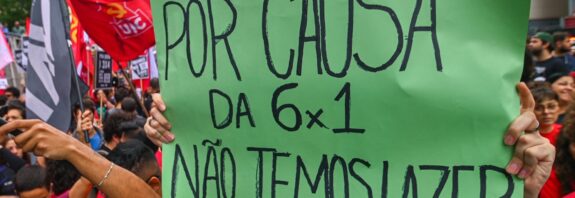 POR CAUSA
DA 6x1
NÃO TEMOS LAZER